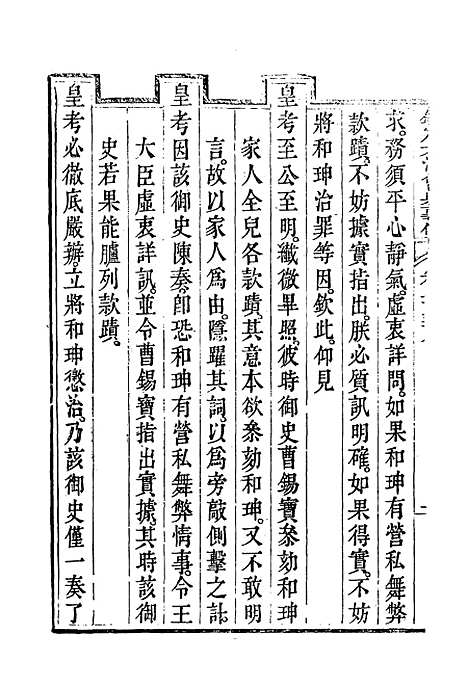 求務須平心靜氣虛衷詳問如果和珅有營私舞弊
款蹟不妨據實指出朕必質訊明確如果得實不妨
將和珅治罪等因欽此仰見
皇考至公至明纖微畢照彼時御史曹錫寶叅劾和珅
家人全兒各款蹟其意本欲叅劾和珅又不敢明
言故以家人為由隱躍其詞以為旁敲側擊之計
皇考因該御史陳奏卽恐和珅有營私舞弊情事令王
大臣虛衷詳訊並令曹錫寶指出實據其時該御
史若果能臚列款蹟
皇考必徹底嚴辦立將和珅懲治乃該御史僅一奏了